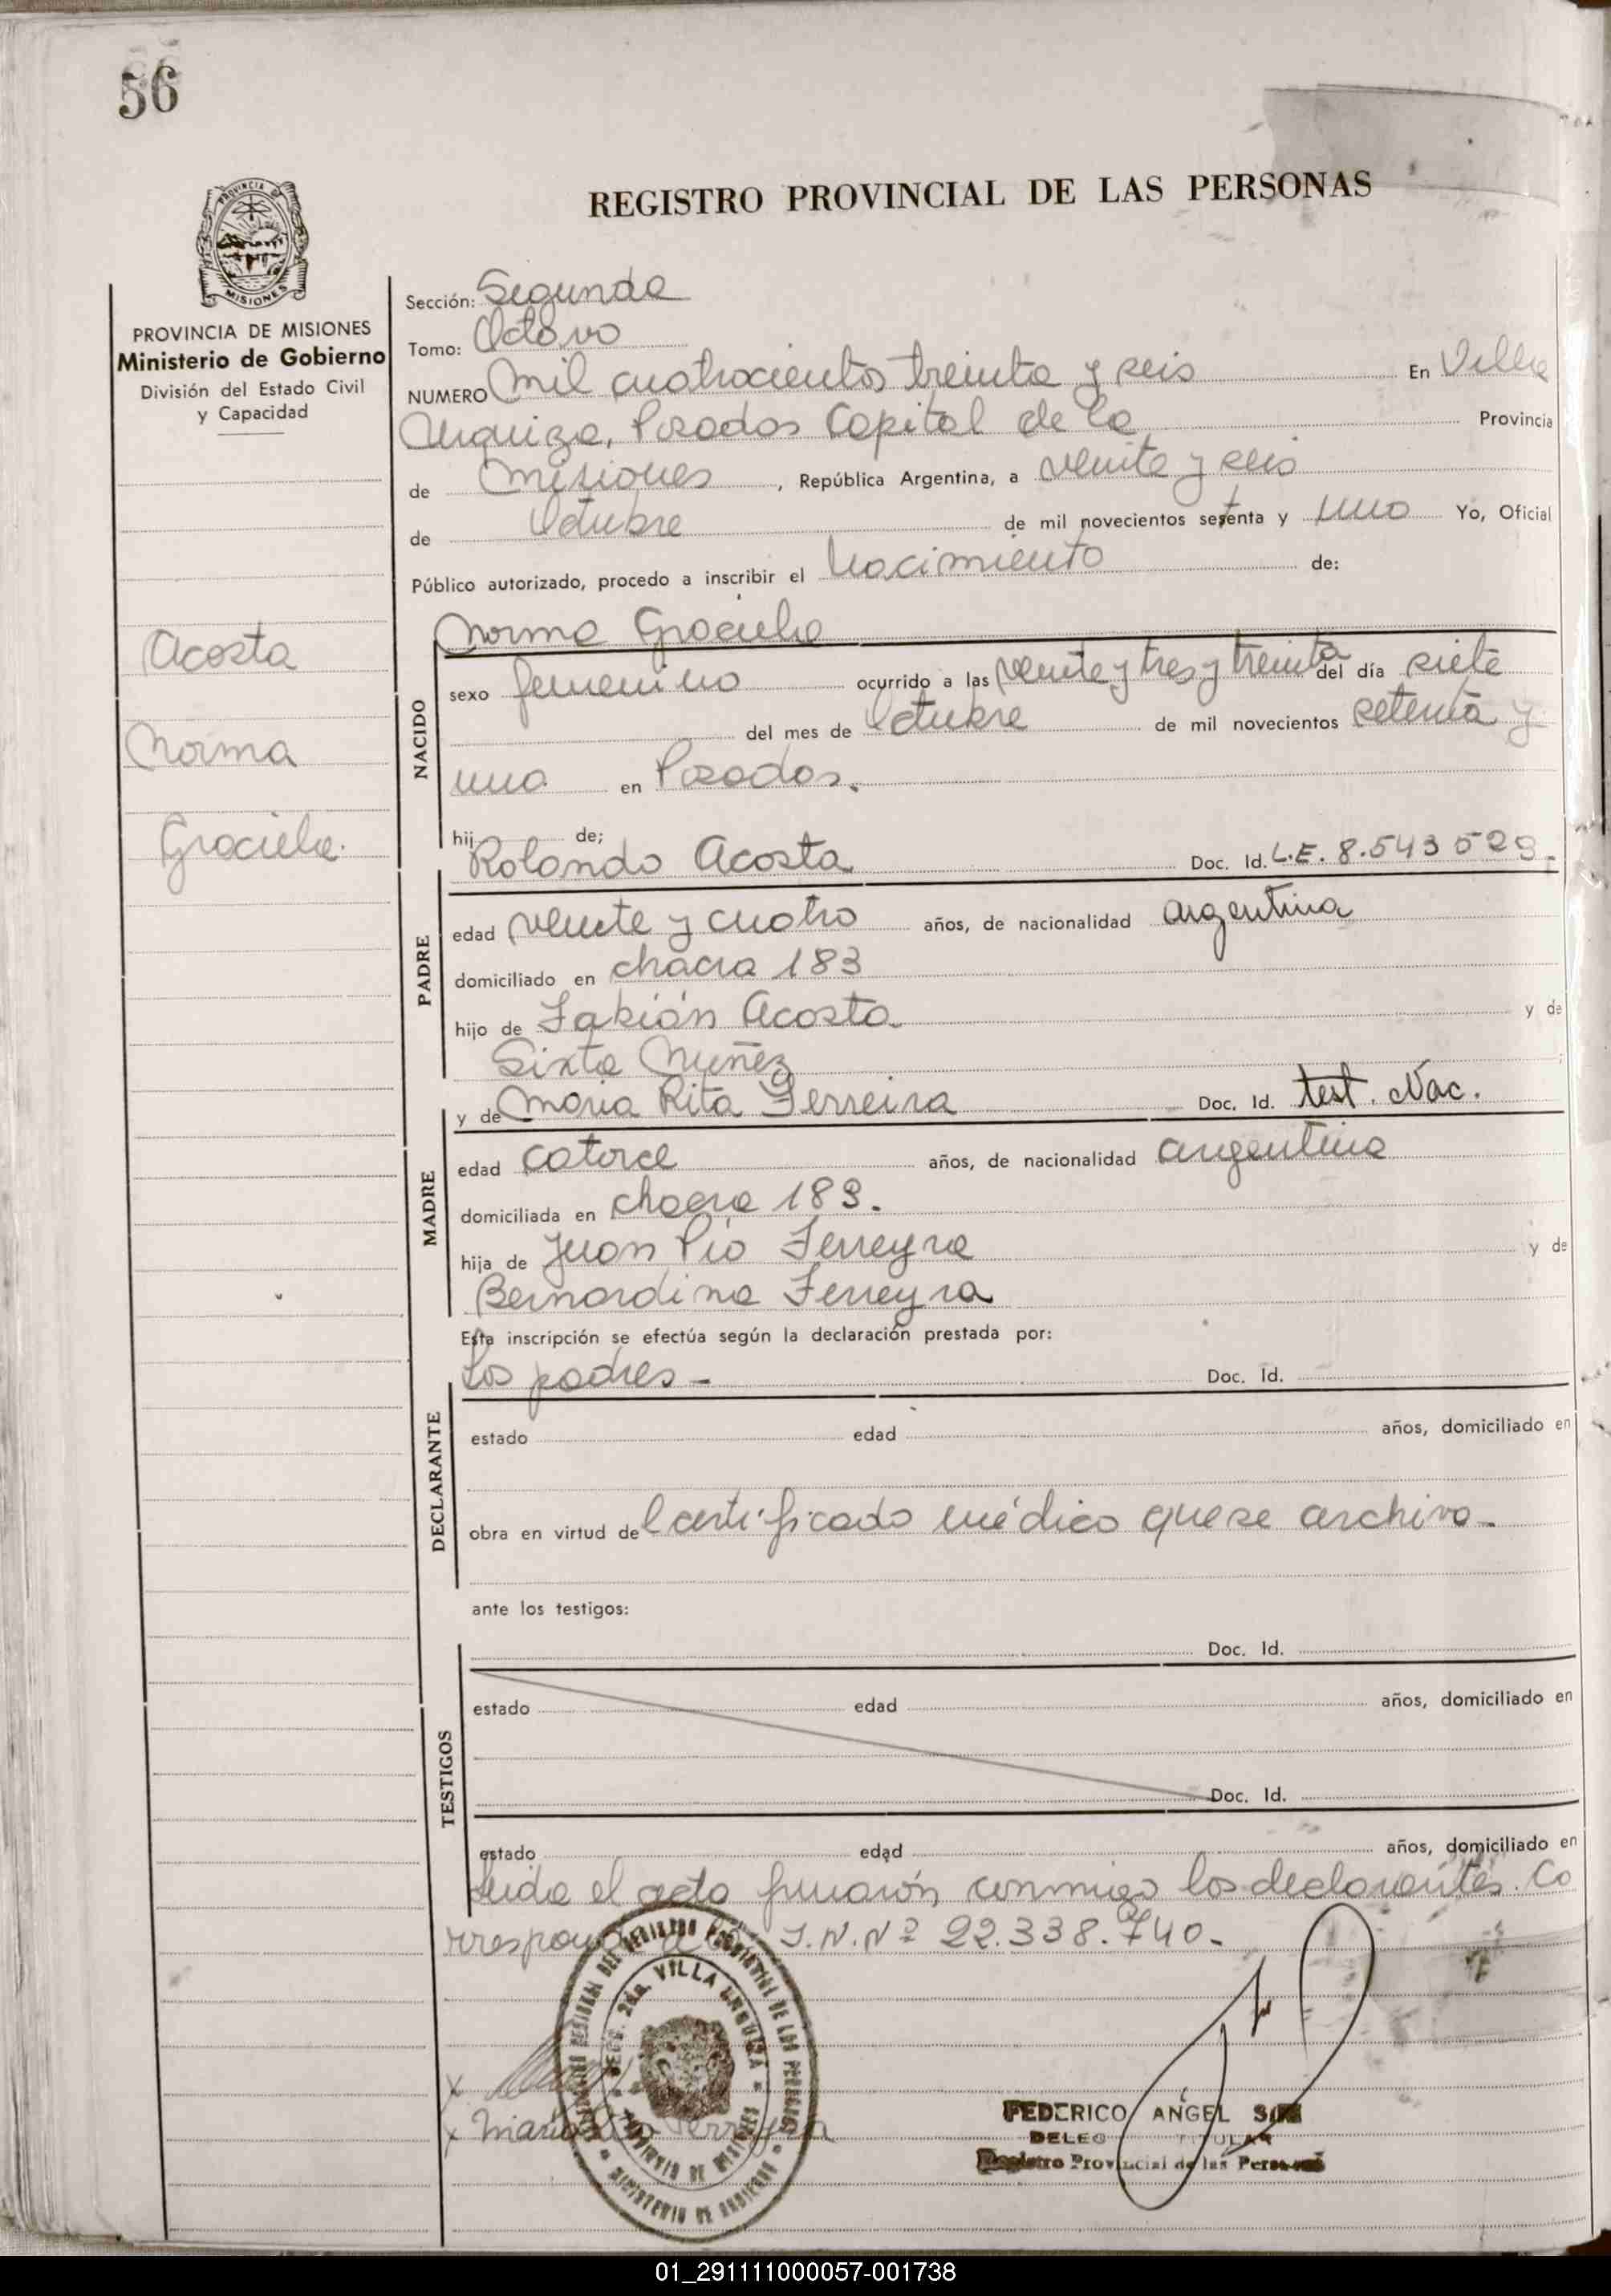 56
REGISTRO PROVINCIAL DE LAS PERSONAS
PROVINCIA DE MISIONES
Ministerio de Gobierno
División del Estado Civil
y Capacidad
Acosta
Norma
Graciela.
Sección: Segunda
Tomo: Octavo
NUMERO Mil cuatrocientos treinta y seis En Villa
Urquiza, Posadas Capital de la Provincia
de Misiones, República Argentina, a veinte y seis
de Octubre de mil novecientos setenta y uno Yo, Oficial
Público autorizado, procedo a inscribir el Nacimiento de:
NACIDO
Norma Graciela
sexo femenino ocurrido a las veinte y tres y treinta del día siete
del mes de Octubre de mil novecientos setenta y
uno en Posadas.
hij de;
PADRE
Rolando Acosta Doc. Id. L.E. 8.543 529.-
edad veinte y cuatro años, de nacionalidad argentina
domiciliado en chacra 183
hijo de Fabián Acosta y de
Sixta Nuñez
MADRE
y de Maria Rita Ferreira Doc. Id. test. Nac.
edad catorce años, de nacionalidad argentina
domiciliada en chacra 183.
hija de Juan Pío Ferreyra y de
Bernardina Ferreyra
Esta inscripción se efectúa según la declaración prestada por:
DECLARANTE
Los padres - Doc. Id.
estado edad años, domiciliado en
obra en virtud del certificado médico que se archiva-
ante los testigos:
TESTIGOS
Doc. Id.
estado edad años, domiciliado en
Doc. Id.
estado edad años, domiciliado en
Leida el acta firmarón conmigo los declarantes. Co
I.N.Nº 22.338.740-
VILLA URQUIZA
x
x Maria Rita Ferreyra
FEDERICO ANGEL
Registro Provincial de las Personas
01_291111000057-001738